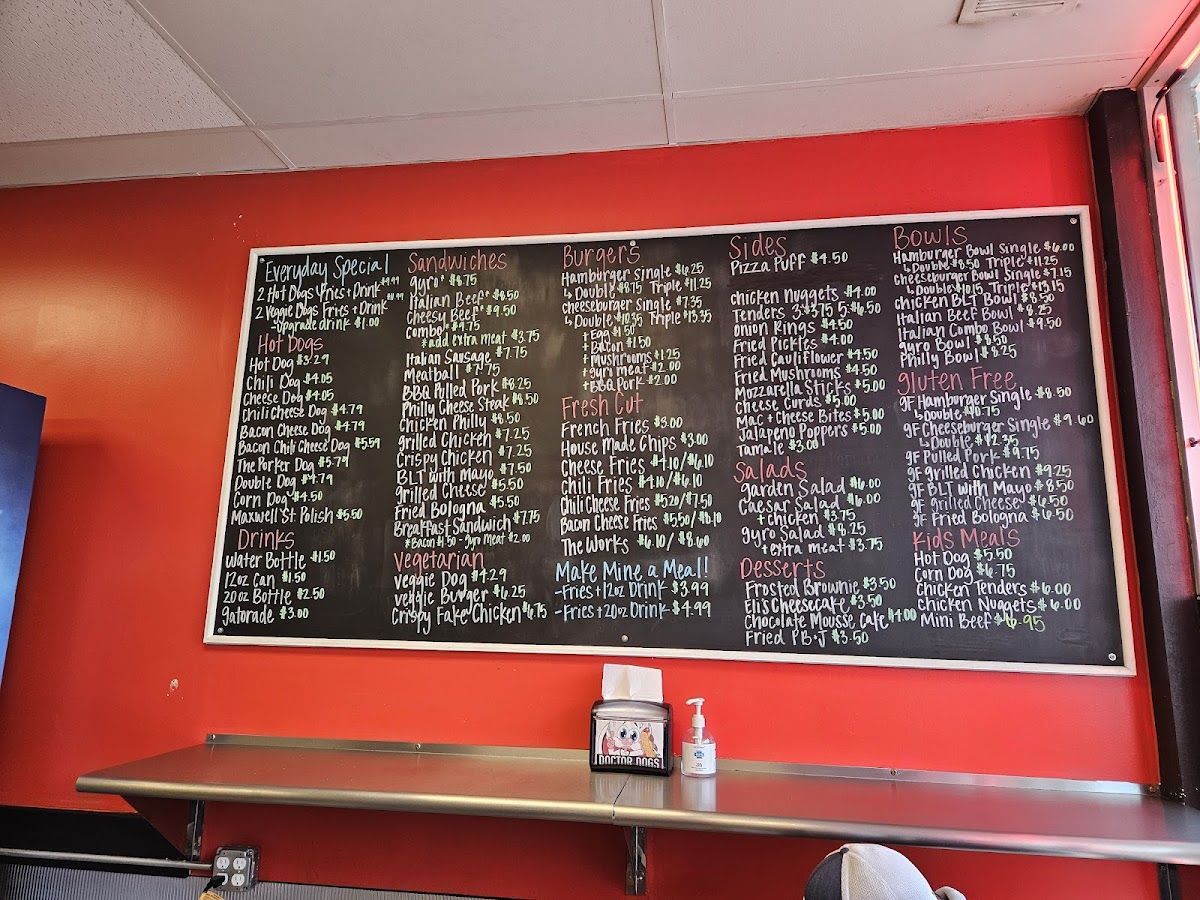 Everyday Special
2 Hot Dogs Fries + Drink
2 Veggie Dogs Fries + Drink
-Upgrade drink $1.00
Hot Dogs
Hot Dog $3.29
Chili Dog $4.05
Cheese Dog $4.05
Chili Cheese Dog $4.79
Bacon Cheese Dog $4.79
Bacon Chili Cheese Dog $5.59
The Porker Dog $5.79
Double Dog $4.79
Corn Dog $4.50
Maxwell St. Polish $5.50
Drinks
Water Bottle $1.50
12oz Can $1.50
20oz Bottle $2.50
Gatorade $3.00
Sandwiches
Gyro* $8.75
Italian Beef* $8.50
Cheesy Beef* $9.50
Combo* $9.75
*add extra meat $3.75
Italian Sausage $7.75
Meatball $7.75
BBQ Pulled Pork $8.25
Philly Cheese Steak $8.50
Chicken Philly $8.50
Grilled Chicken $7.25
Crispy Chicken $7.25
BLT with Mayo $7.50
Grilled Cheese $5.50
Fried Bologna $5.50
Breakfast Sandwich $7.75
*Bacon $1.50 - gyro meat $2.00
Vegetarian
Veggie Dog $4.29
Veggie Burger $6.25
Crispy Fake Chicken $6.75
Burgers
Hamburger Single $6.25
↳ Double $8.75 Triple $11.25
Cheeseburger Single $7.35
↳ Double $10.35 Triple $13.35
+ Egg $1.50
+ Bacon $1.50
+ mushrooms $1.25
+ gyro meat $2.00
+ BBQ Pork $2.00
Fresh Cut
French Fries $3.00
House Made Chips $3.00
Cheese Fries $4.10/$6.10
Chili Fries $4.10/$6.10
Chili Cheese Fries $5.20/$7.50
Bacon Cheese Fries $5.50/$8.10
The Works $6.10/$8.60
Make Mine a Meal!
-Fries + 12oz Drink $3.99
-Fries + 20oz Drink $4.99
Sides
Pizza Puff $4.50
Chicken Nuggets $4.00
Tenders 3-$3.75 5-$6.50
Onion Rings $4.50
Fried Pickles $4.00
Fried Cauliflower $4.50
Fried Mushrooms $4.50
Mozzarella Sticks $5.00
Cheese Curds $5.00
Mac + Cheese Bites $5.00
Jalapeno Poppers $5.00
Tamale $3.00
Salads
Garden Salad $6.00
Caesar Salad $6.00
+ chicken $3.75
Gyro Salad $8.25
+ extra meat $3.75
Desserts
Frosted Brownie $3.50
Eli's Cheesecake $3.50
Chocolate Mousse Cake $4.00
Fried PB+J $3.50
Bowls
Hamburger Bowl Single $6.00
↳ Double $8.50 Triple $11.25
Cheeseburger Bowl Single $7.15
↳ Double $10.15 Triple $13.15
Chicken BLT Bowl $8.50
Italian Beef Bowl $8.25
Italian Combo Bowl $9.50
Gyro Bowl $8.50
Philly Bowl $8.25
Gluten Free
GF Hamburger Single $8.50
↳ Double $10.75
GF Cheeseburger Single $9.60
↳ Double $12.35
GF Pulled Pork $9.75
GF Grilled Chicken $9.25
GF BLT with Mayo $8.50
GF Grilled Cheese $6.50
GF Fried Bologna $6.50
Kids Meals
Hot Dog $5.50
Corn Dog $6.75
Chicken Tenders $6.00
Chicken Nuggets $6.00
Mini Beef $6.95
DOCTOR DOGS